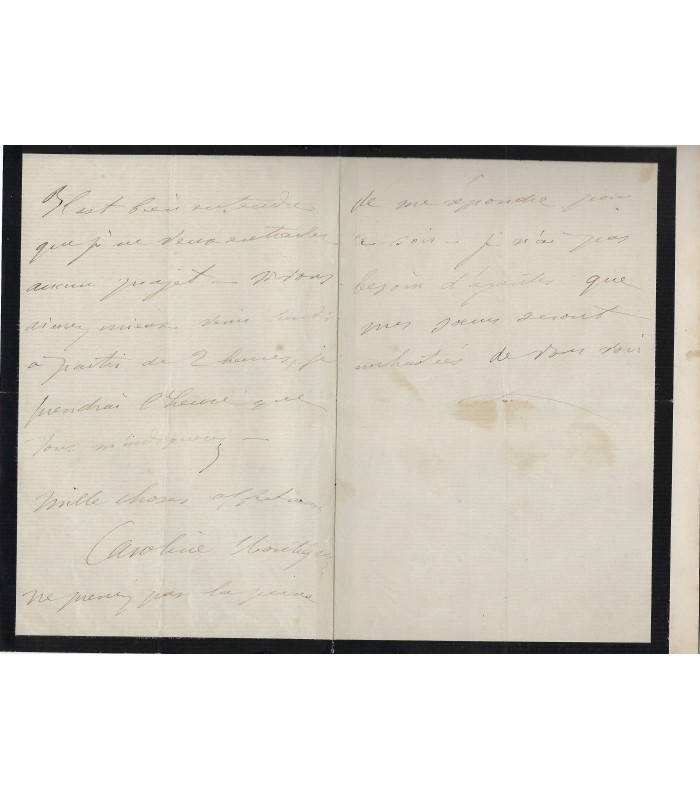 Il est bien entendu
que je ne veux entraver
aucun projet — si vous
aimez mieux venir lundi
à partir de 2 heures, je
prendrai l'heure que
vous m'indiquerez —
Mille choses affectueuses
Caroline
ne prenez pas la peine
de me répondre pour
ce soir — je n'ai pas
besoin d'ajouter que
mes sœurs seront
enchantées de vous voir